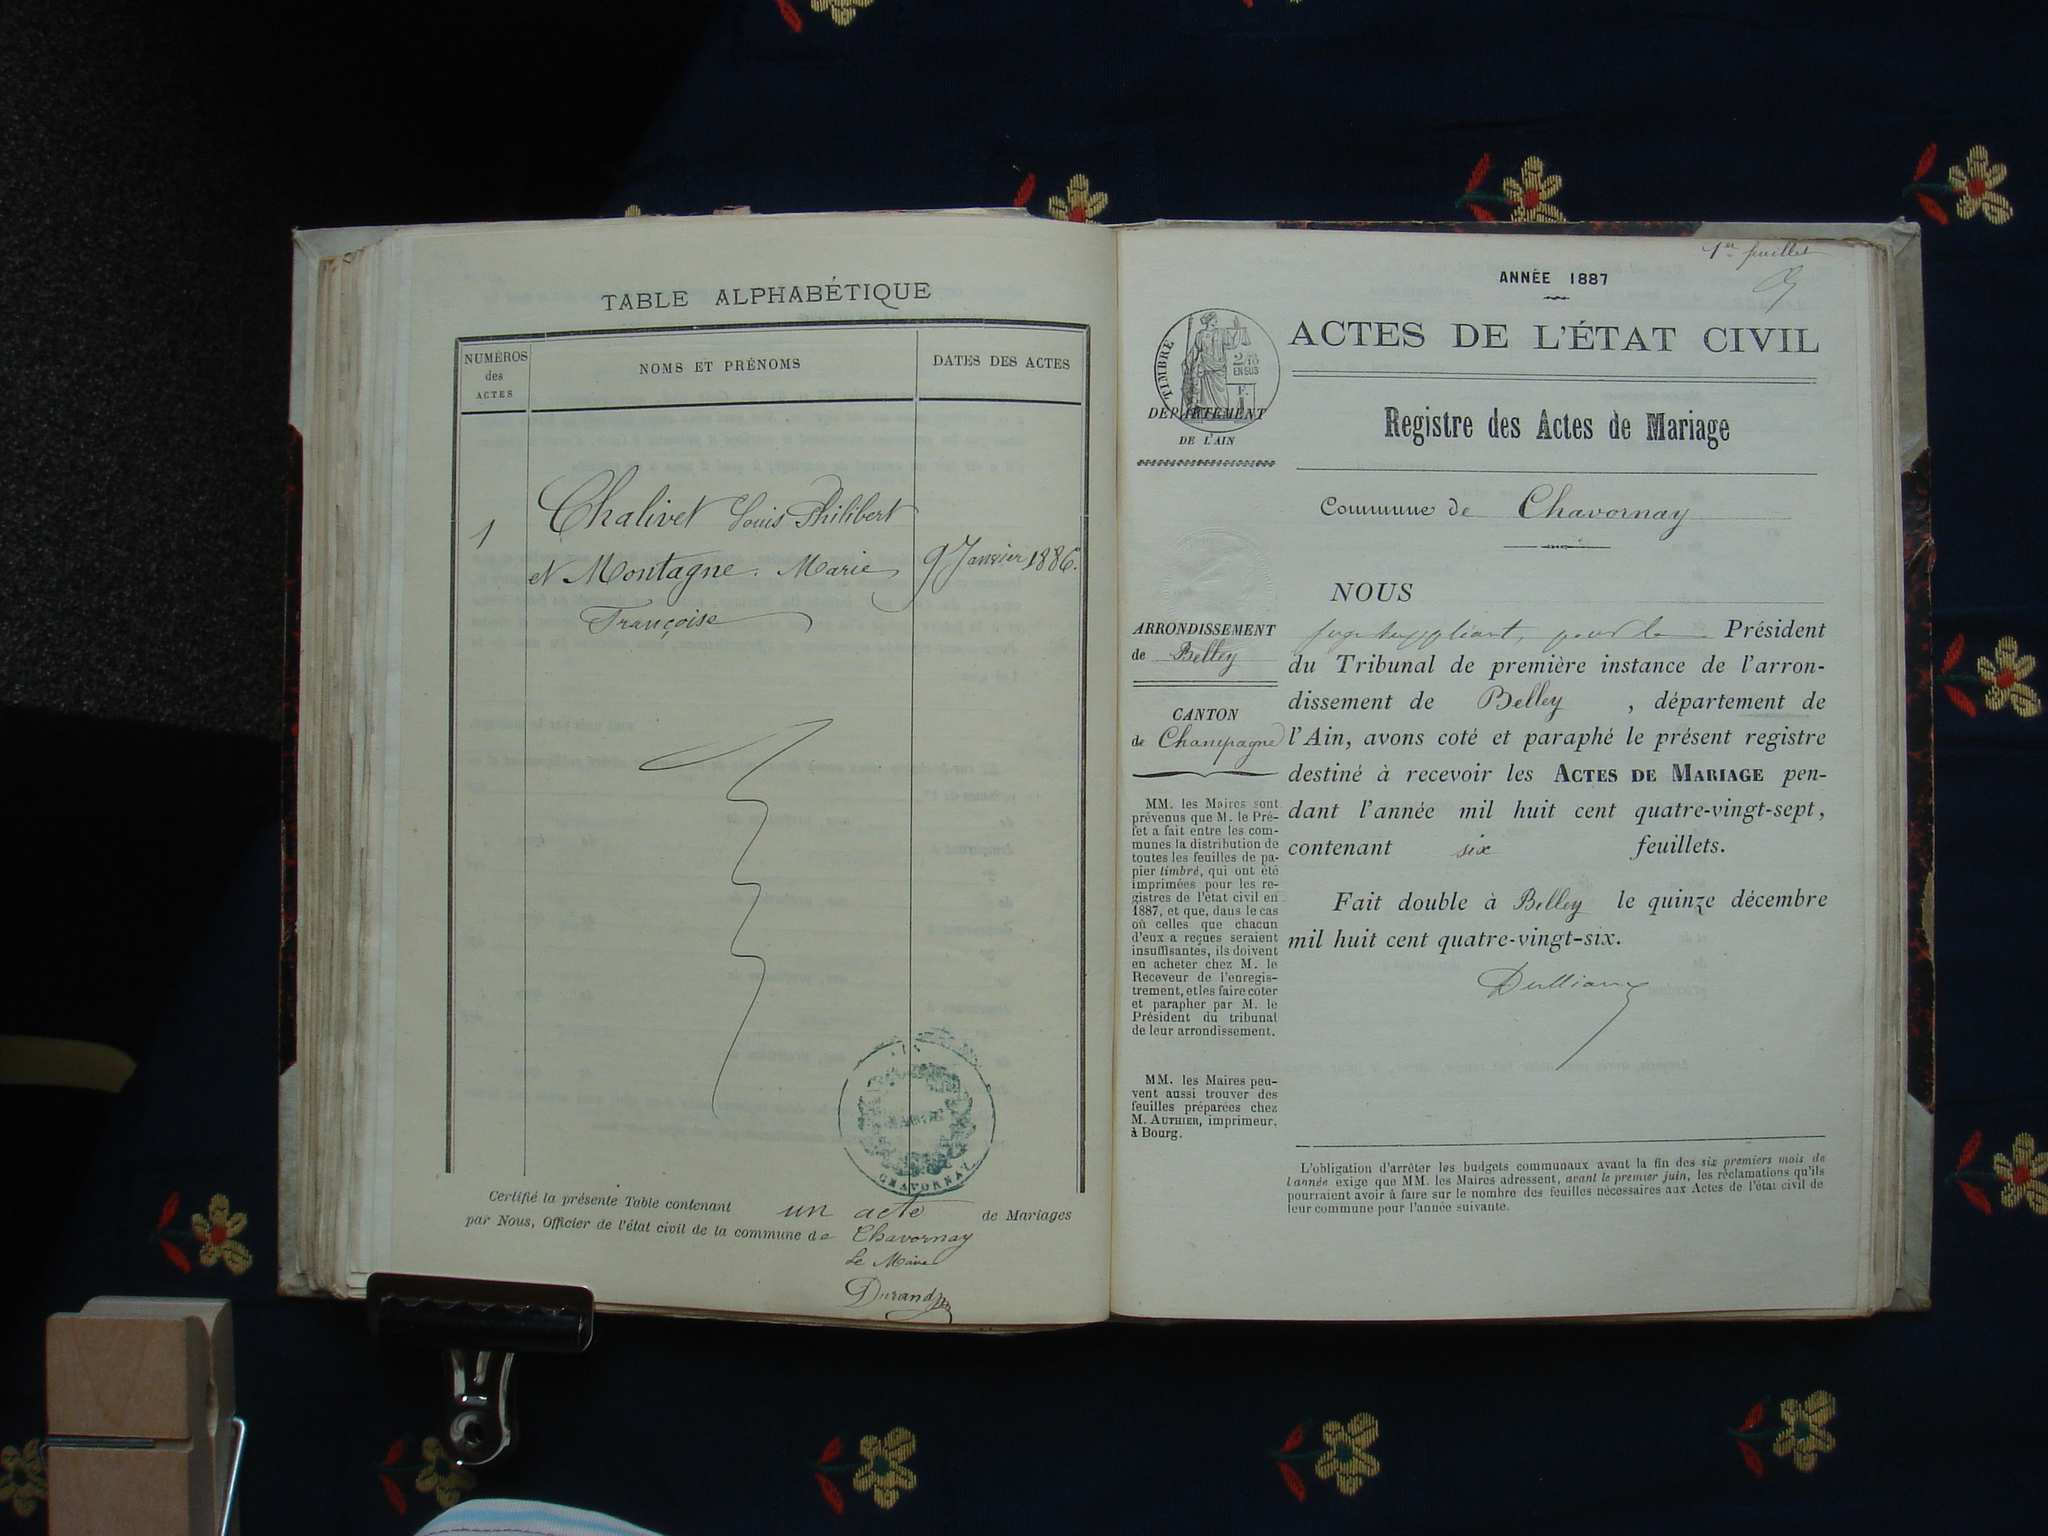 TABLE ALPHABÉTIQUE
NUMÉROS
des
ACTES
NOMS ET PRÉNOMS
DATES DES ACTES
1
Chalivet Louis Philibert
et Montagne Marie
Françoise
9 Janvier 1886
CHAVORNAY
Certifié la présente Table contenant un acte de Mariages
par Nous, Officier de l'état civil de la commune de Chavornay
Le Maire
Durand
1er feuillet
ANNÉE 1887
ACTES DE L'ÉTAT CIVIL
Registre des Actes de Mariage
Commune de Chavornay
TIMBRE
2/10
EN SUS
DÉPARTEMENT
DE L'AIN
ARRONDISSEMENT
de Belley
CANTON
de Champagne
MM. les Maires sont
prévenus que M. le Pré-
fet a fait entre les com-
munes la distribution de
toutes les feuilles de pa-
pier timbré, qui ont été
imprimées pour les re-
gistres de l'état civil en
1887, et que, dans le cas
où celles que chacun
d'eux a reçues seraient
insuffisantes, ils doivent
en acheter chez M. le
Receveur de l'enregis-
trement, et les faire coter
et parapher par M. le
Président du tribunal
de leur arrondissement.
MM. les Maires peu-
vent aussi trouver des
feuilles préparées chez
M. AUTHIER, imprimeur,
à Bourg.
NOUS
juge suppléant, pour le Président
du Tribunal de première instance de l'arron-
dissement de Belley, département de
l'Ain, avons coté et paraphé le présent registre
destiné à recevoir les ACTES DE MARIAGE pen-
dant l'année mil huit cent quatre-vingt-sept,
contenant six feuillets.
Fait double à Belley le quinze décembre
mil huit cent quatre-vingt-six.
L'obligation d'arrêter les budgets communaux avant la fin des six premiers mois de
l'année exige que MM. les Maires adressent, avant le premier juin, les réclamations qu'ils
pourraient avoir à faire sur le nombre des feuilles nécessaires aux Actes de l'état civil de
leur commune pour l'année suivante.